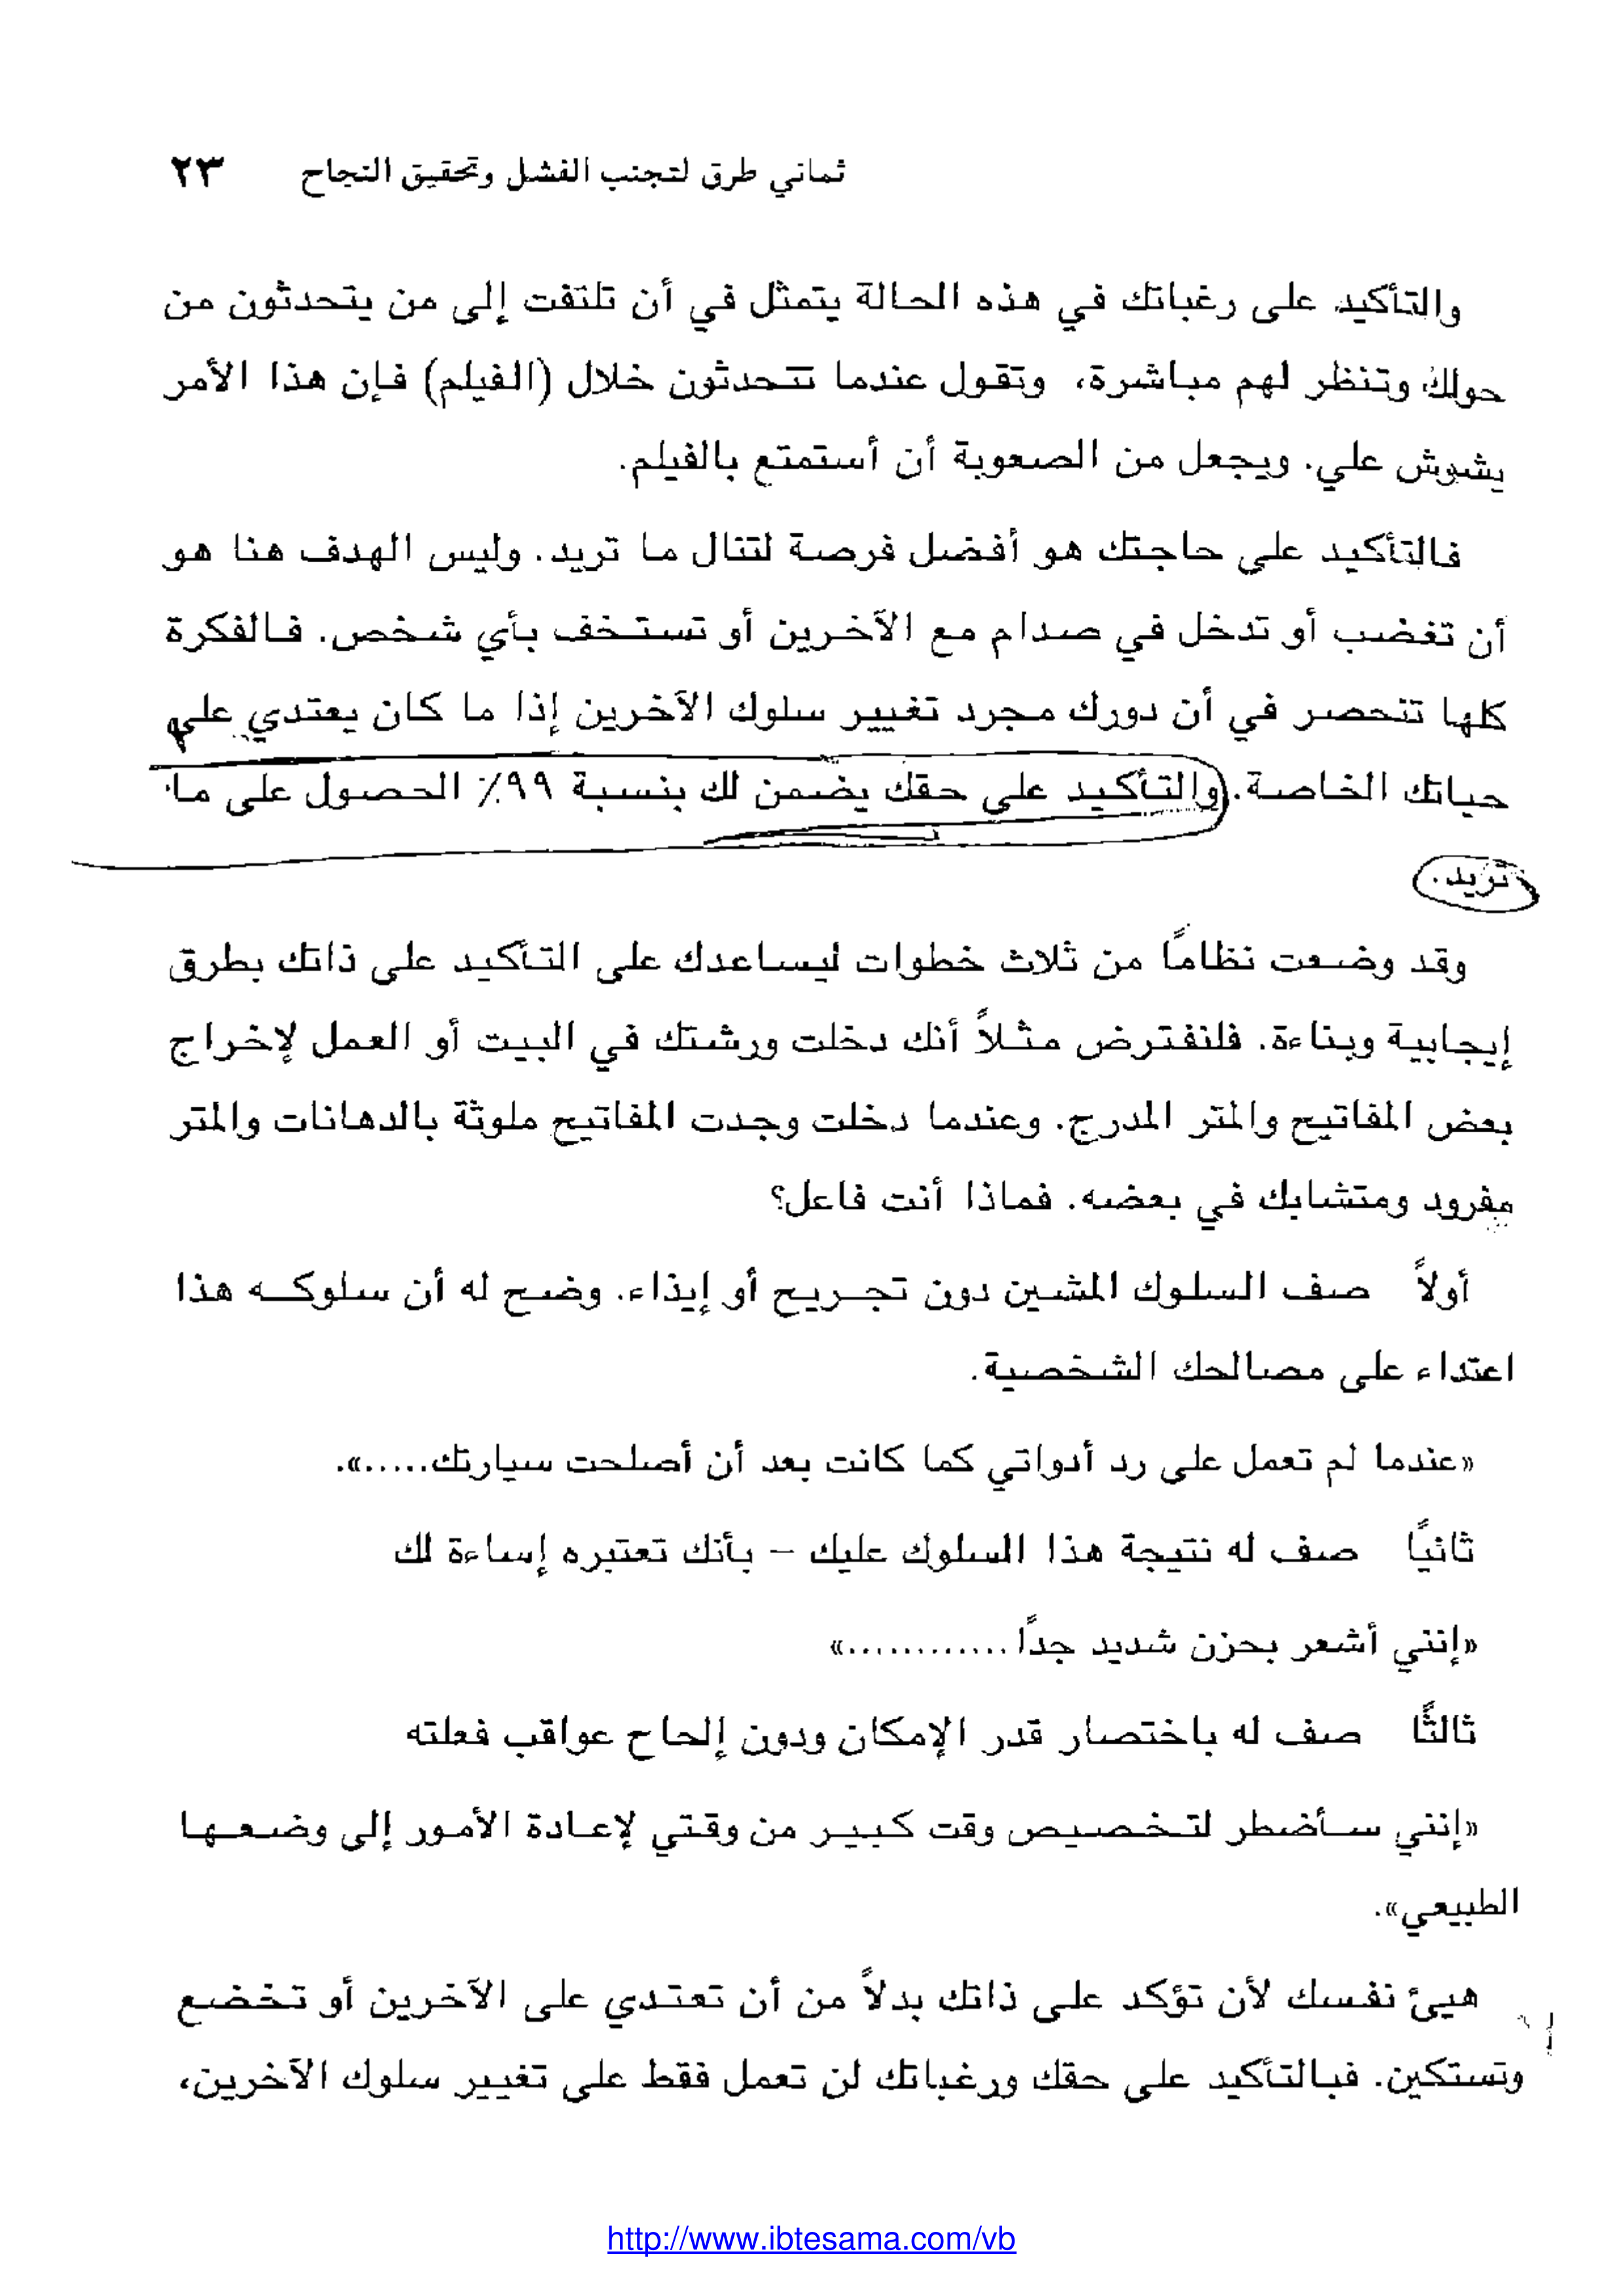 ثماني طرق لتجنب الفشل وتحقيق النجاح ٢٣
والتأكيد على رغباتك في هذه الحالة يتمثل في أن تلتفت إلى من يتحدثون من
حولك وتنظر لهم مباشرة، وتقول عندما تتحدثون خلال (الفيلم) فإن هذا الأمر
يشوش علي. ويجعل من الصعوبة أن أستمتع بالفيلم.
فالتأكيد على حاجتك هو أفضل فرصة لتنال ما تريد. وليس الهدف هنا هو
أن تغضب أو تدخل في صدام مع الآخرين أو تستخف بأي شخص. فالفكرة
كلها تنحصر في أن دورك مجرد تغيير سلوك الآخرين إذا ما كان يعتدي على
حياتك الخاصة. والتأكيد على حقك يضمن لك بنسبة ٩٩٪ الحصول على ما
تريد.
وقد وضعت نظامًا من ثلاث خطوات ليساعدك على التأكيد على ذاتك بطرق
إيجابية وبناءة. فلنفترض مثلاً أنك دخلت ورشتك في البيت أو العمل لإخراج
بعض المفاتيح والمتر المدرج. وعندما دخلت وجدت المفاتيح ملوثة بالدهانات والمتر
مفرود ومتشابك في بعضه. فماذا أنت فاعل؟
أولاً صف السلوك المشين دون تجريح أو إيذاء. وضح له أن سلوكه هذا
اعتداء على مصالحك الشخصية.
«عندما لم تعمل على رد أدواتي كما كانت بعد أن أصلحت سيارتك.....».
ثانيًا صف له نتيجة هذا السلوك عليك – بأنك تعتبره إساءة لك
«إنني أشعر بحزن شديد جدًا ............»
ثالثًا صف له باختصار قدر الإمكان ودون إلحاح عواقب فعلته
«إنني سأضطر لتخصيص وقت كبير من وقتي لإعادة الأمور إلى وضعها
الطبيعي».
هيئ نفسك لأن تؤكد على ذاتك بدلاً من أن تعتدي على الآخرين أو تخضع
وتستكين. فبالتأكيد على حقك ورغباتك لن تعمل فقط على تغيير سلوك الآخرين،
http://www.ibtesama.com/vb